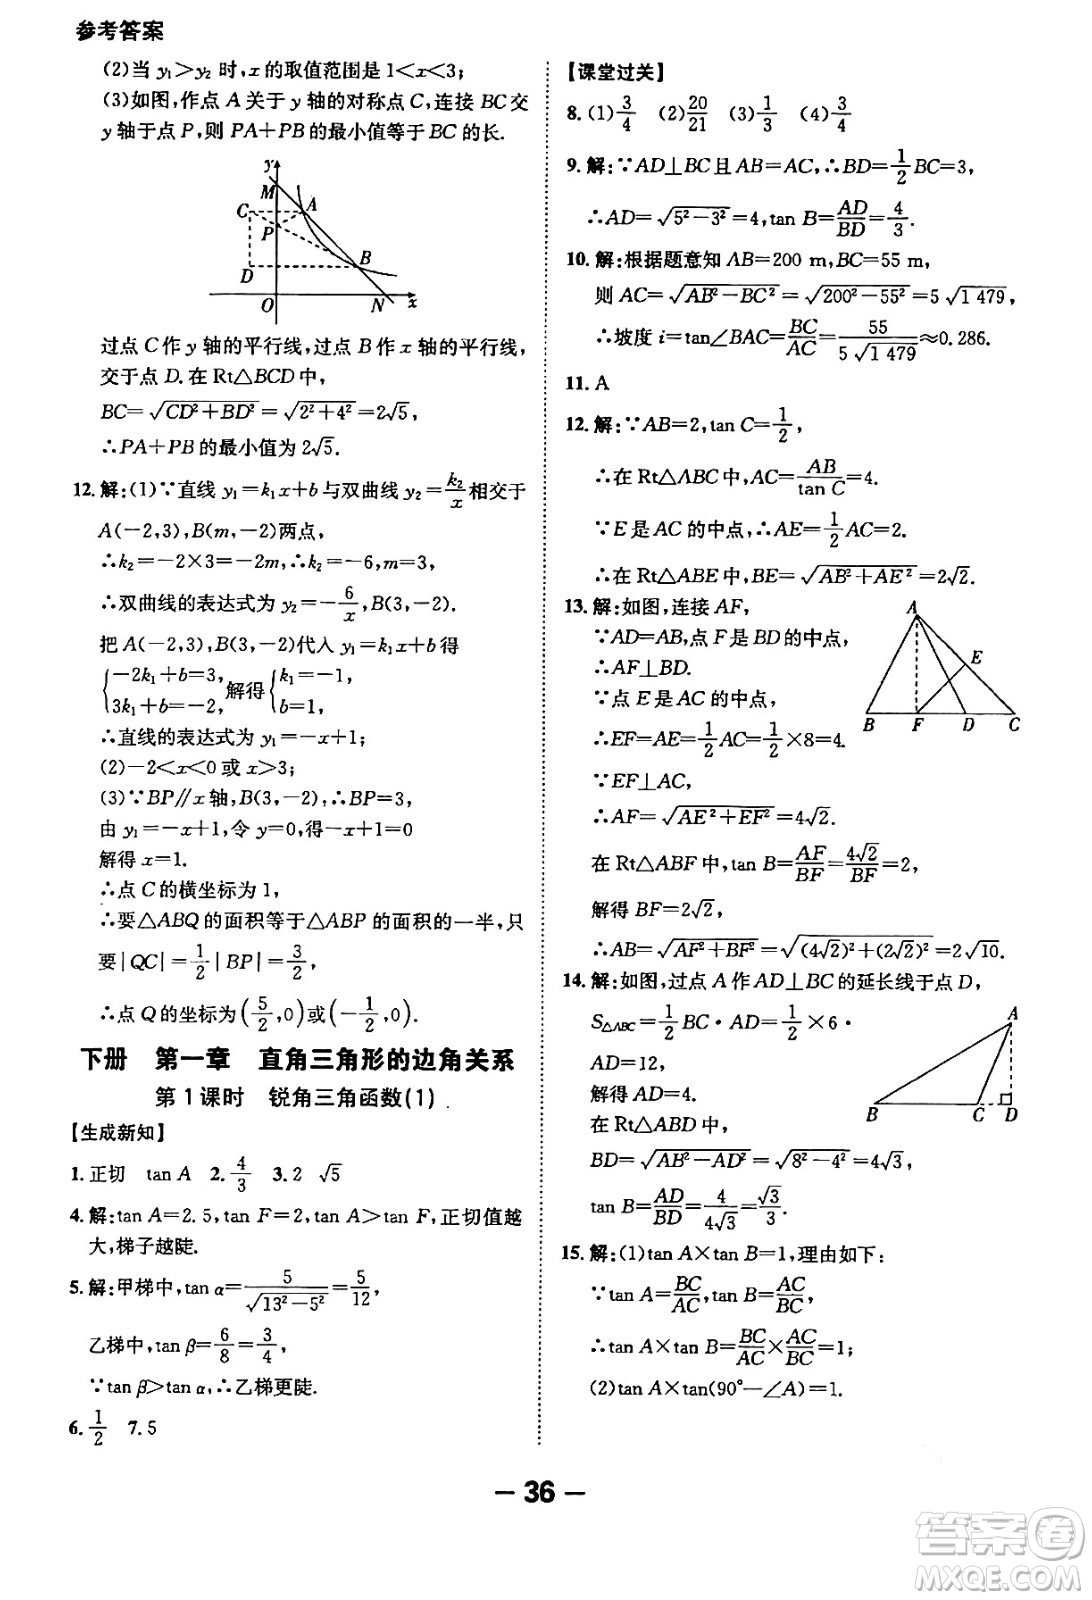 参考答案
(2)当 y₁＞y₂ 时,x 的取值范围是 1＜x＜3;
(3)如图,作点 A 关于 y 轴的对称点 C,连接 BC 交
y 轴于点 P,则 PA+PB 的最小值等于 BC 的长.
y
M
C
A
P
D
B
O
N
x
过点 C 作 y 轴的平行线,过点 B 作 x 轴的平行线,
交于点 D.在 Rt△BCD 中,
BC=√(CD²+BD²)=√(2²+4²)=2√5,
∴PA+PB 的最小值为 2√5.
12.解:(1)∵直线 y₁=k₁x+b 与双曲线 y₂=k₂/x 相交于
A(-2,3),B(m,-2)两点,
∴k₂=-2×3=-2m,∴k₂=-6,m=3;
∴双曲线的表达式为 y₂=-6/x,B(3,-2).
把 A(-2,3),B(3,-2)代入 y₁=k₁x+b 得
{-2k₁+b=3, 3k₁+b=-2, 解得{k₁=-1, b=1,
∴直线的表达式为 y₁=-x+1;
(2)-2＜x＜0 或 x＞3;
(3)∵BP∥x 轴,B(3,-2),∴BP=3,
由 y₁=-x+1,令 y=0,得-x+1=0
解得 x=1.
∴点 C 的横坐标为 1,
∴要△ABQ 的面积等于△ABP 的面积的一半,只
要|QC|=1/2|BP|=3/2,
∴点 Q 的坐标为(5/2,0)或(-1/2,0).
下册 第一章 直角三角形的边角关系
第 1 课时 锐角三角函数(1)
【生成新知】
1.正切 tan A 2.4/3 3.2 √5
4.解:tan A=2.5,tan F=2,tan A＞tan F,正切值越
大,梯子越陡.
5.解:甲梯中,tan α=5/√(13²-5²)=5/12,
乙梯中,tan β=6/8=3/4,
∵tan β＞tan α,∴乙梯更陡.
6.1/2 7.5
【课堂过关】
8.(1)3/4 (2)20/21 (3)1/3 (4)3/4
9.解:∵AD⊥BC 且 AB=AC,∴BD=1/2BC=3,
∴AD=√(5²-3²)=4,tan B=AD/BD=4/3.
10.解:根据题意知 AB=200 m,BC=55 m,
则 AC=√(AB²-BC²)=√(200²-55²)=5√1 479,
∴坡度 i=tan∠BAC=BC/AC=55/(5√1 479)≈0.286.
11.A
12.解:∵AB=2,tan C=1/2,
∴在 Rt△ABC 中,AC=AB/tan C=4.
∵E 是 AC 的中点,∴AE=1/2AC=2.
∴在 Rt△ABE 中,BE=√(AB²+AE²)=2√2.
13.解:如图,连接 AF,
∵AD=AB,点 F 是 BD 的中点,
∴AF⊥BD.
∵点 E 是 AC 的中点,
∴EF=AE=1/2AC=1/2×8=4.
∵EF⊥AC,
∴AF=√(AE²+EF²)=4√2.
A
E
B
F
D
C
在 Rt△ABF 中,tan B=AF/BF=4√2/BF=2,
解得 BF=2√2,
∴AB=√(AF²+BF²)=√((4√2)²+(2√2)²)=2√10.
14.解:如图,过点 A 作 AD⊥BC 的延长线于点 D,
S△ABC=1/2BC·AD=1/2×6·
AD=12,
解得 AD=4.
在 Rt△ABD 中,
A
B
C
D
BD=√(AB²-AD²)=√(8²-4²)=4√3,
tan B=AD/BD=4/(4√3)=√3/3.
15.解:(1)tan A×tan B=1,理由如下:
∵tan A=BC/AC,tan B=AC/BC,
∴tan A×tan B=BC/AC×AC/BC=1;
(2)tan A×tan(90°-∠A)=1.
- 36 -
答案卷
MXQE.COM